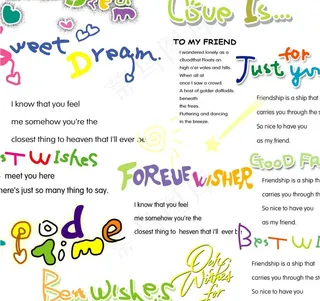 Love Is...
Sweet Dream.
TO MY FRIEND
I wandered lonely as a
cloudthat Floats on
high o'er vales and hills.
When all at
once I saw a crowd.
A host of golden daffodils.
beneath
the trees.
Fluttering and dancing
in the breeze.
for
Just you
I know that you feel
me somehow you're the
closest thing to heaven that I'll ever be.
Friendship is a ship that
carries you through the s
So nice to have you
as my friend.
ST WISHES
meet you here
here's just so many thing to say.
FOREVE WISHER
GOOD FR
Friendship is a ship that
carries you through the
So nice to have you
as my friend.
I know that you feel
me somehow you're the
closest thing to heaven that I'll ever b
Good
time
BEST WI
Friendship is a ship that
carries you through the st
So nice to have you
Best WISHES
Wishes
for